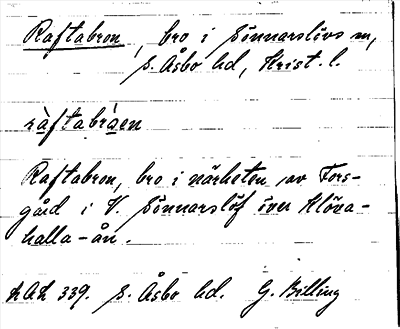 Raftabron, bro i Sönnarslivs sn,
S. Åsbo hd, Krist. l.
ràftabráen
Raftabron, bro i närheten av Fors-
gård i V. Sönnarslöf över Klöva-
halla-ån.
LAL 339. S. Åsbo hd. G. Billing